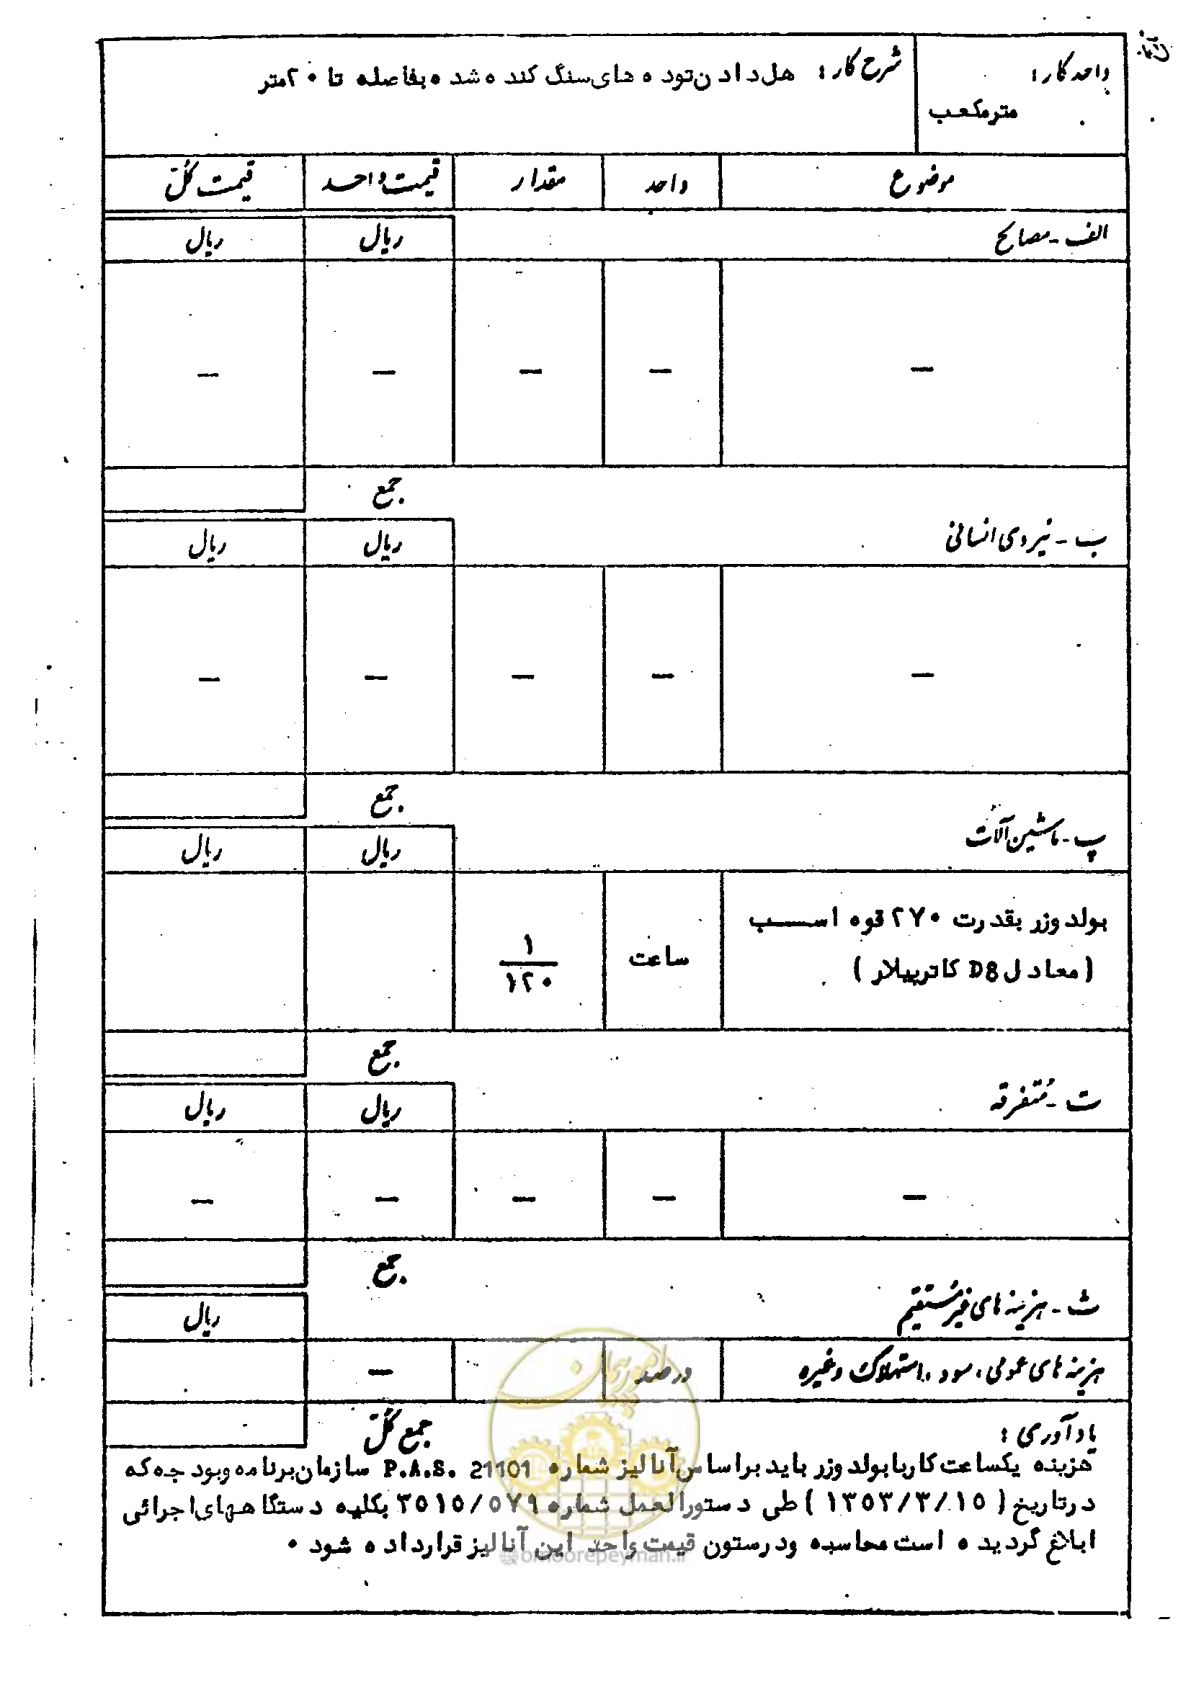 واحد کار :
مترمکعب
شرح کار : هل دادن توده های سنگ کنده شده بفاصله تا ۲۰ متر
موضوع | واحد | مقدار | قیمت واحد | قیمت کل
الف - مصالح | ریال | ریال
— | — | — | — | —
جمع
ب - نیروی انسانی | ریال | ریال
— | — | — | — | —
جمع
پ - ماشین آلات | ریال | ریال
بولدوزر بقدرت ۲۷۰ قوه اسب
(معادل D8 کاترپیلار ) | ساعت | ۱/۱۲۰
جمع
ت - متفرقه | ریال | ریال
— | — | — | — | —
جمع
ث - هزینه های غیرمستقیم | ریال
هزینه های عمومی ، سود ، استهلاک وغیره | درصد | —
جمع کل
یادآوری :
هزینه یکساعت کاربابولدوزر باید براساس آنالیز شماره P.A.S. 21101 سازمان برنامه وبودجه که
درتاریخ ( ۱۳۵۳/۳/۱۵ ) طی دستورالعمل شماره ۳۵۱۵/۵۷۹ بکلیه دستگاههای اجرائی
ابلاغ گردیده است محاسبه ودرستون قیمت واحد این آنالیز قرارداده شود .
امور پیمان
@omoorepeyman.ir